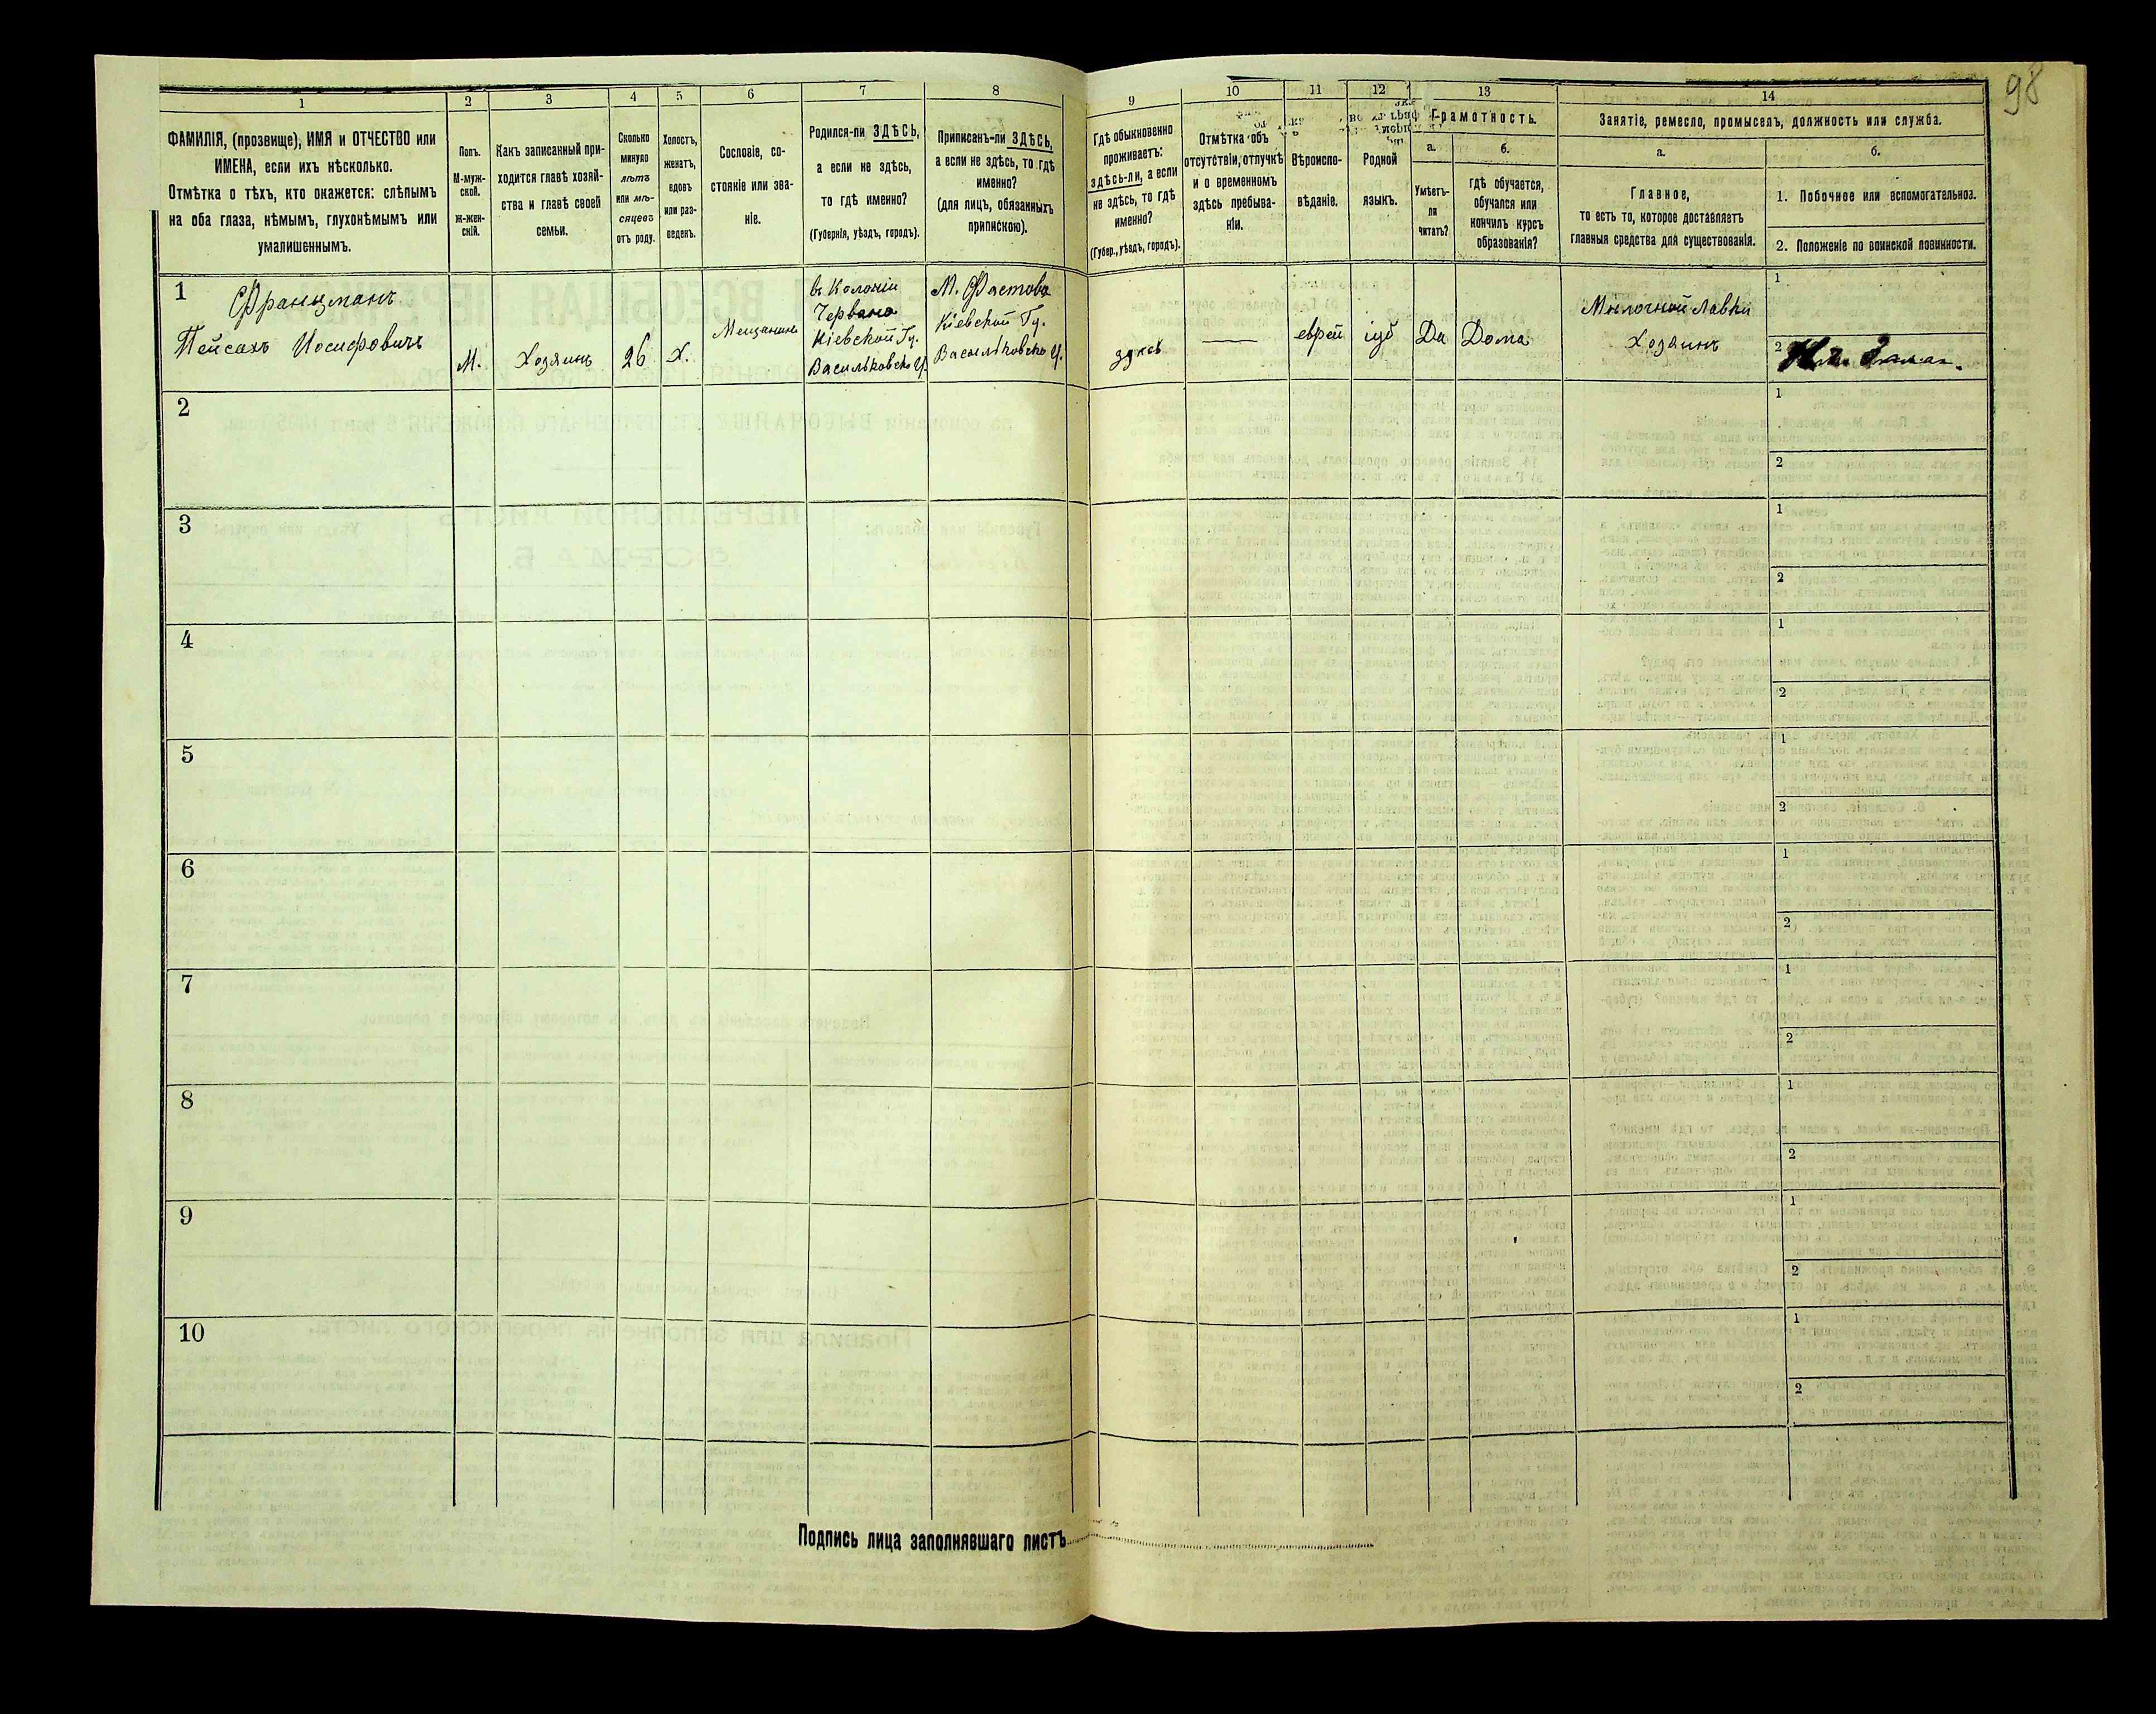 98
1
2
3
4
5
6
7
8
9
10
11
12
13
14
ФАМИЛІЯ, (прозвище), ИМЯ и ОТЧЕСТВО или
ИМЕНА, если ихъ нѣсколько.
Отмѣтка о тѣхъ, кто окажется: слѣпымъ
на оба глаза, нѣмымъ, глухонѣмымъ или
умалишеннымъ.
Полъ.
М-муж-
ской.
Ж-жен-
скій.
Какъ записанный при-
ходится главѣ хозяй-
ства и главѣ своей
семьи.
Сколько
минуло
лѣтъ
или мѣ-
сяцевъ
отъ роду.
Холостъ,
женатъ,
вдовъ
или раз-
веденъ.
Сословіе, со-
стояніе или зва-
ніе.
Родился-ли ЗДѢСЬ,
а если не здѣсь,
то гдѣ именно?
(Губернія, уѣздъ, городъ).
Приписанъ-ли ЗДѢСЬ,
а если не здѣсь, то гдѣ
именно?
(для лицъ, обязанныхъ
припискою).
Гдѣ обыкновенно
проживаетъ:
здѣсь-ли, а если
не здѣсь, то гдѣ
именно?
(Губер., уѣздъ, городъ).
Отмѣтка объ
отсутствіи, отлучкѣ
и о временномъ
здѣсь пребыва-
ніи.
Вѣроиспо-
вѣданіе.
Родной
языкъ.
Грамотность.
а.
б.
Умѣетъ-
ли
читать?
гдѣ обучается,
обучался или
кончилъ курсъ
образованія?
Занятіе, ремесло, промыселъ, должность или служба.
а.
б.
Главное,
то есть то, которое доставляетъ
главныя средства для существованія.
1. Побочное или вспомогательное.
2. Положеніе по воинской повинности.
1
Францманъ
Пейсахъ Иосифовичъ
М.
Хозяинъ
26
Х.
Мещанинъ
въ Колоніи
Червоно
Кіевской Гу.
Васильковско У.
М. Фастова
Кіевской Гу.
Васильковско У.
здѣсь
еврей
іуд
Да
Дома
Мелочной Лавки
Хозяинъ
1
2
2
1
2
3
1
2
4
1
2
5
1
2
6
1
2
7
1
2
8
1
2
9
1
2
10
1
2
Подпись лица заполнявшаго листъ